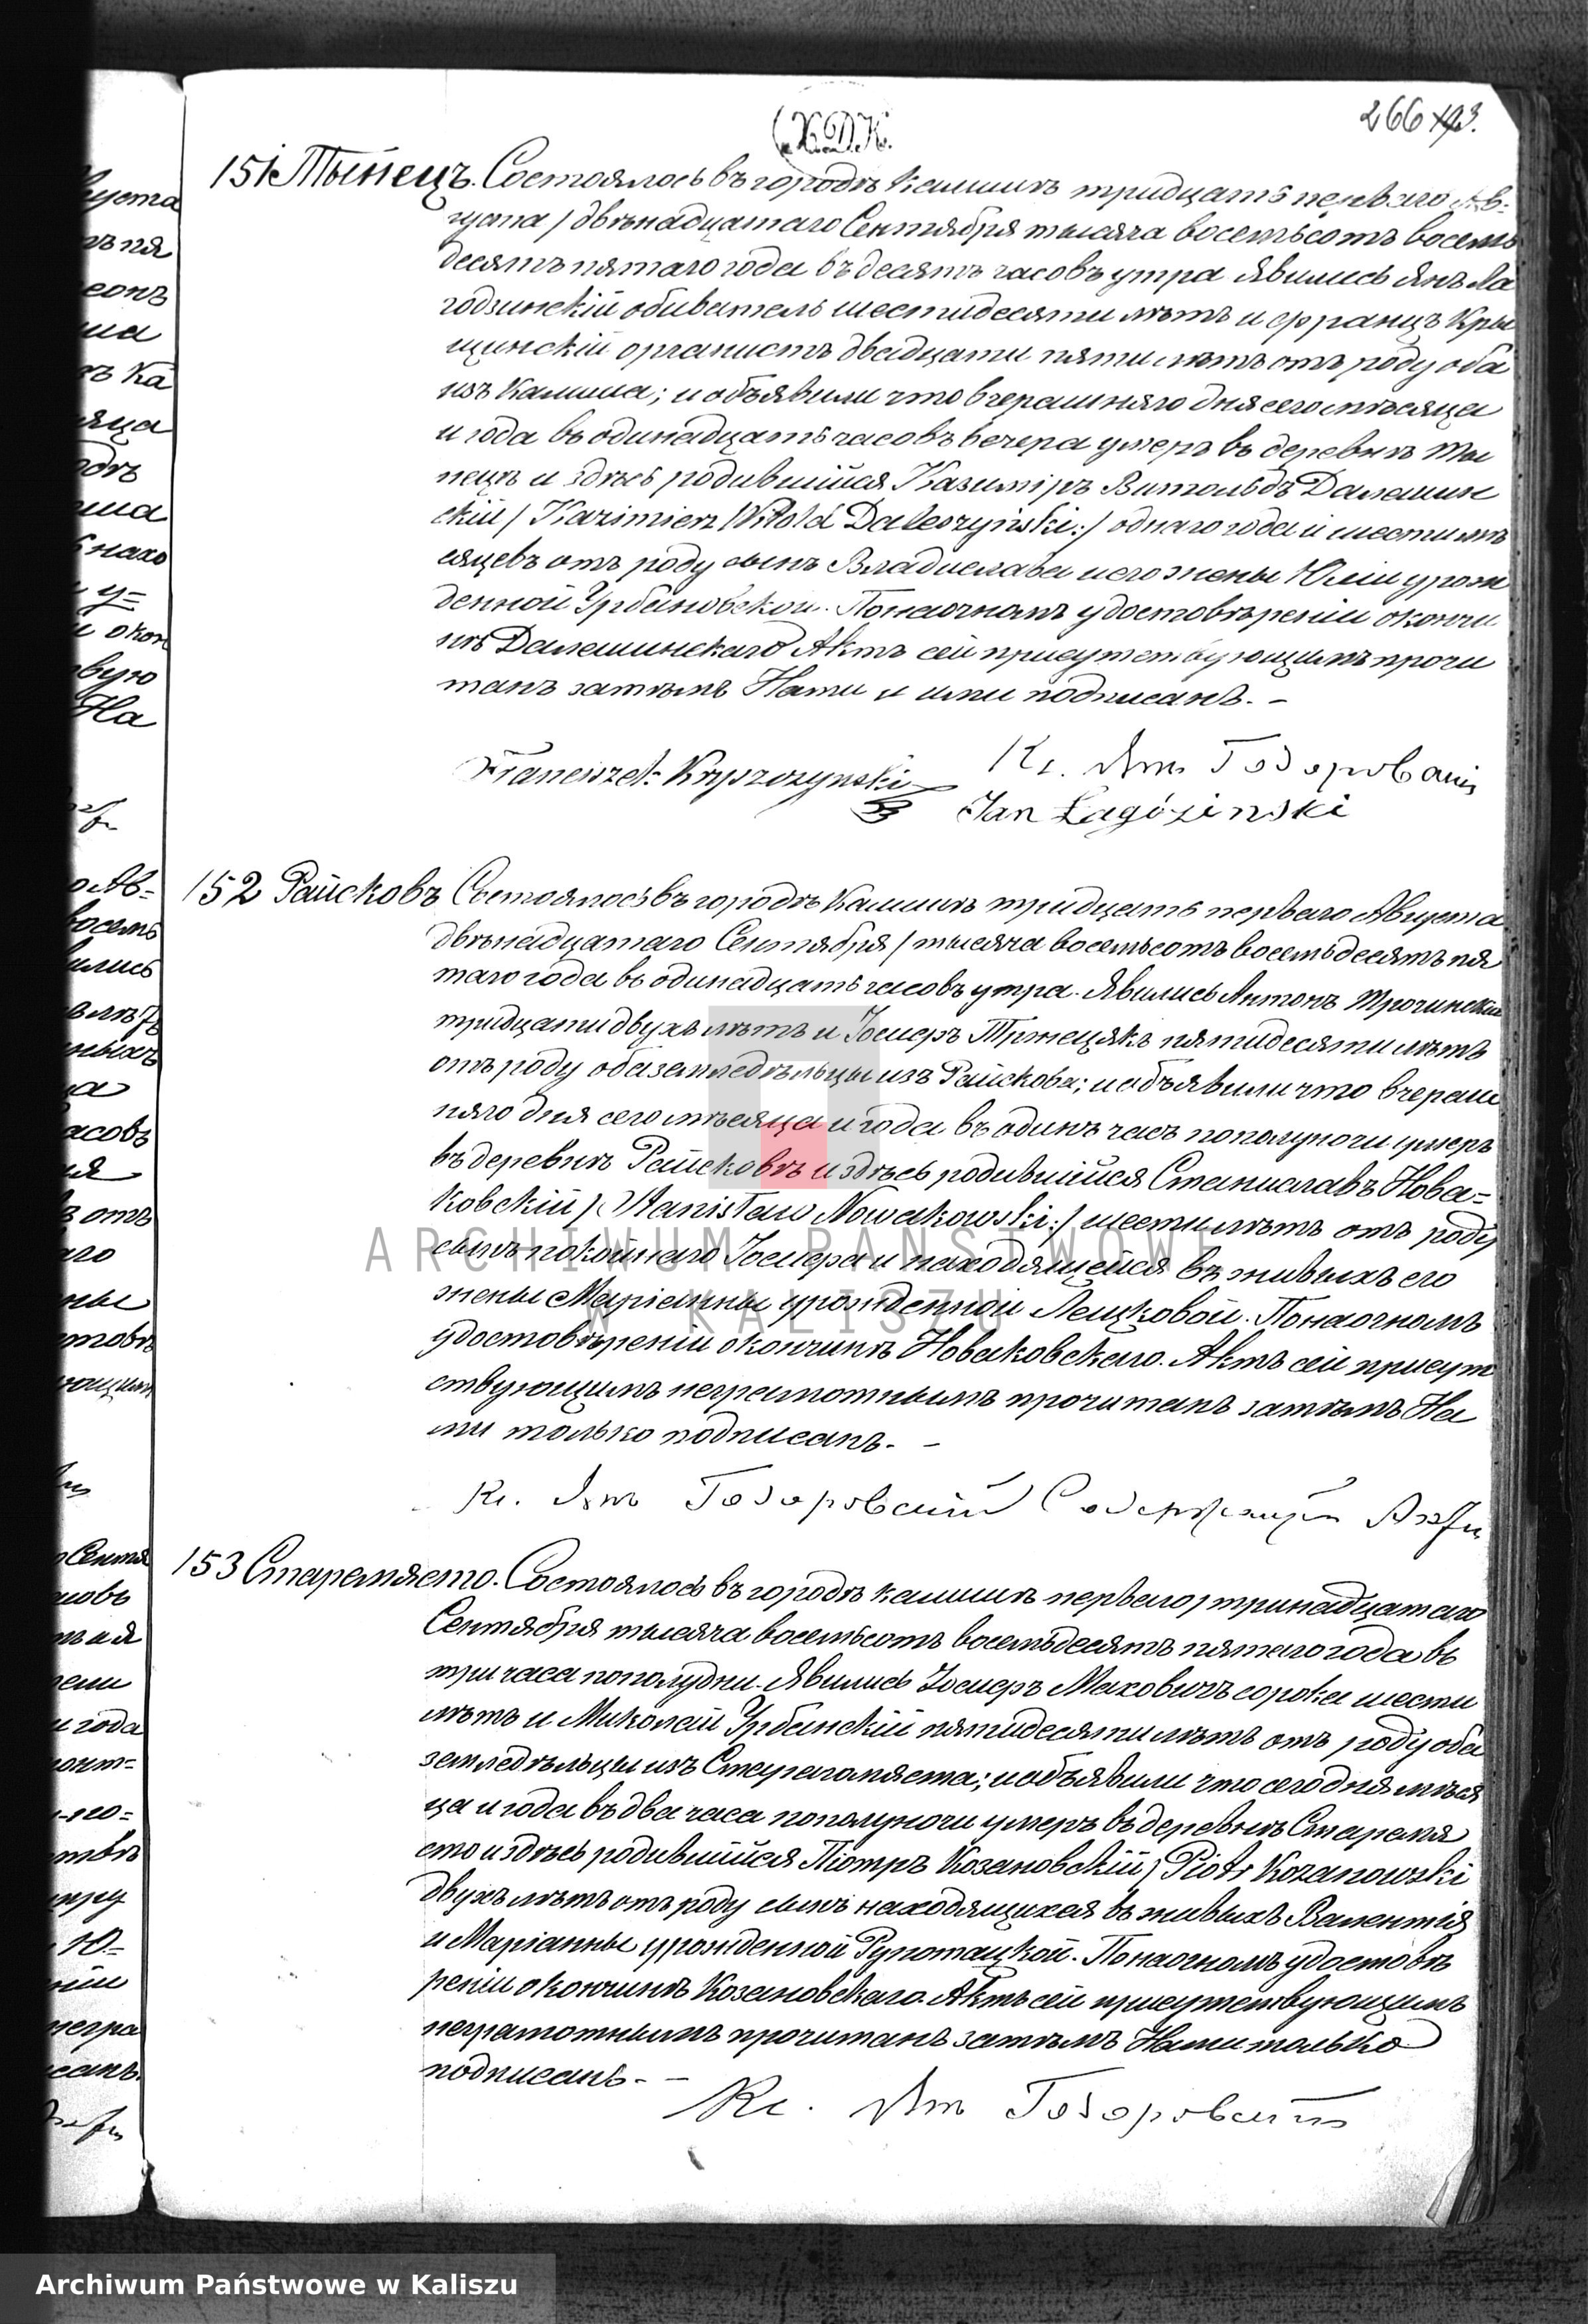 266 193.
(К.Д.К.
151 Тынецъ. Состоялось въ городѣ Калишѣ тридцать перваго Ав-
густа / двѣнадцатаго Сентября тысяча восемьсотъ восемь
десятъ пятаго года въ десять часовъ утра явились Янъ Ла
годзинскій обыватель шестидесяти лѣтъ и Францъ Кры
щинскій органистъ двадцати пяти лѣтъ отъ роду оба
изъ Калиша; и объявили что вчерашняго дня сего мѣсяца
и года въ одинадцать часовъ вечера умеръ въ деревнѣ Ты
нецъ и здѣсь родившійся Казиміръ Витольдъ Далешин
скій / Kazimierz Witold Daleszyński:/ однаго года и шести мѣ
сяцевъ отъ роду сынъ Владислава и его жены Юліи урож
денной Урбановской. По наочномъ удостовѣреніи окончи
нѣ Далешинскаго Актъ сей присутствующимъ прочи
танъ затѣмъ Нами и ими подписанъ. -
Franciszek Kryszczynski Кс. Ант Годоровскій
Jan Łagóziński
152 Райсковъ Состоялось въ городѣ Калишѣ тридцать перваго Августа
двѣнадцатаго Сентября / тысяча восемьсотъ восемьдесятъ пя
таго года въ одинадцать часовъ утра. Явились Антонъ Трочинскій
тридцати двухъ лѣтъ и Іосифъ Тржецякъ пятидесяти лѣтъ
отъ роду оба земледѣльцы изъ Райскова; и объявили что вчераш
няго дня сего мѣсяца и года въ одинъ часъ пополуночи умеръ
въ деревнѣ Райсковѣ и здѣсь родившійся Станиславъ Нова-
ковскій / Stanisław Nowakowski:/ шести лѣтъ отъ роду
сынъ покойнаго Іосифа и находящейся въ живыхъ его
жены Маріанны урожденной Лешковой. По наочномъ
удостовѣреніи окончинѣ Новаковскаго. Актъ сей присут
ствующимъ неграмотнымъ прочитанъ затѣмъ На
ми только подписанъ. -
Кс. Ант Годоровскій Содержащій Акты
153 Старемясто. Состоялось въ городѣ Калишѣ перваго / тринадцатаго
Сентября тысяча восемьсотъ восемьдесятъ пятаго года въ
три часа пополудни. Явились Іосифъ Маховичъ сорока шести
лѣтъ и Миколай Урбанскій пятидесяти лѣтъ отъ роду оба
земледѣльцы изъ Старагомяста; и объявили что сего дня мѣся
ца и года въ два часа пополуночи умеръ въ деревнѣ Старемя
сто и здѣсь родившійся Піотръ Козановскій / Piotr Kozanowski
двухъ лѣтъ отъ роду сынъ находящихся въ живыхъ Валентія
и Маріанны урожденной . По наочномъ удостовѣ
реніи окончинѣ Козановскаго. Актъ сей присутствующимъ
неграмотнымъ прочитанъ затѣмъ Нами только
подписанъ. -
Кс. Ант Годоровскій
ARCHIWUM PAŃSTWOWE
W KALISZU
Archiwum Państwowe w Kaliszu